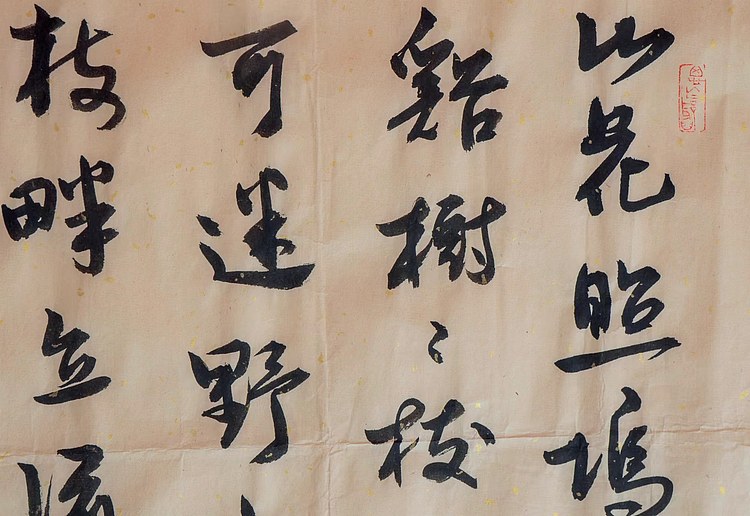 山花照塢
谿樹〻枝
可迷野
枝畔立